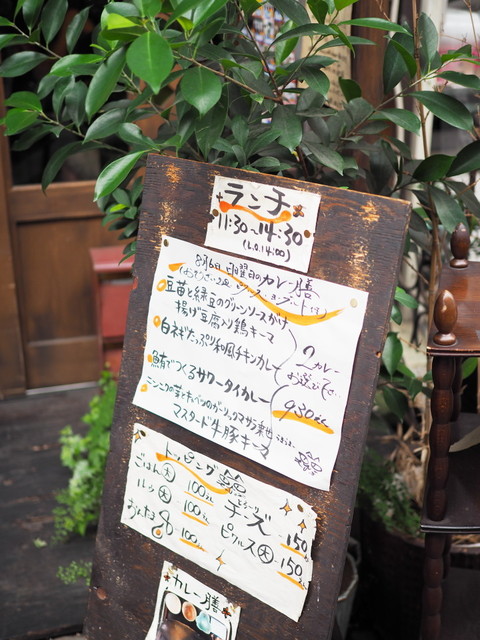 ランチ
11:30〜14:30
(L.O.14:00)
8月6日 日曜日のカレー膳
豆苗と緑豆のグリーンソースがけ
揚げ豆腐入り鶏キーマ
白ネギたっぷり和風チキンカレー
鯖でつくるサワータイカレー
マスタード牛豚キーマ
2カレー
お選び下さい
930
トッピング
ごはん 大 100
ルゥ 大 100
100
チーズ 150
ピクルス 大 150
カレー膳